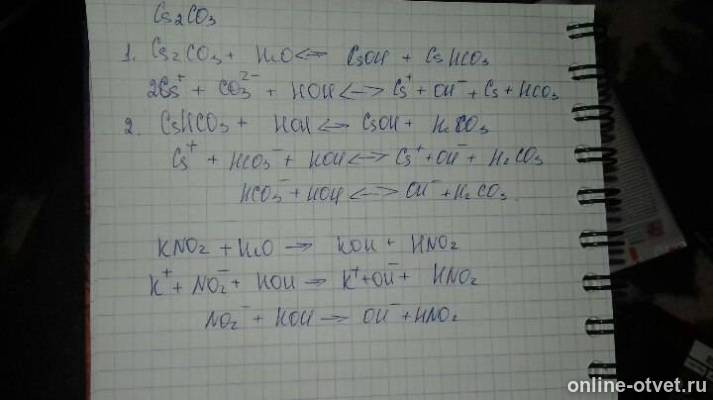 Cs₂CO₃
1. Cs₂CO₃ + H₂O ⟺ CsOH + CsHCO₃
2Cs⁺ + CO₃²⁻ + HOH ⟺ Cs⁺ + OH⁻ + Cs + HCO₃
2. CsHCO₃ + HOH ⟺ CsOH + H₂CO₃
Cs⁺ + HCO₃⁻ + HOH ⟺ Cs⁺ + OH⁻ + H₂CO₃
HCO₃⁻ + HOH ⟺ OH⁻ + H₂CO₃.
KNO₂ + H₂O → KOH + HNO₂
K⁺ + NO₂⁻ + HOH → K⁺ + OH⁻ + HNO₂
NO₂⁻ + HOH → OH⁻ + HNO₂
online-otvet.ru